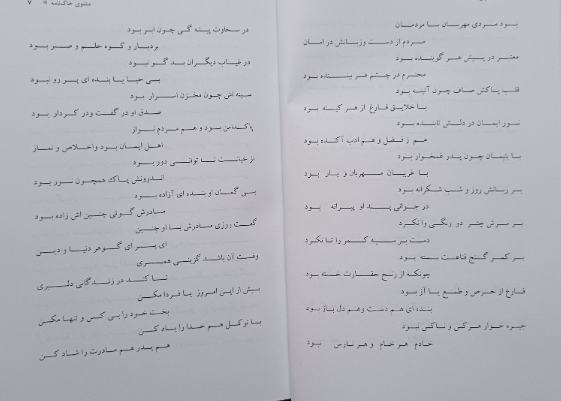 بود مردی مهربان با مردمان
مردم از دست وزبانش در امان
معتبر در پیش هر گوینده بود
محترم در چشم هر بیننده بود
قلب پاکش صاف چون آئینه بود
با خلایق فارغ از هر کینه بود
نور ایمان در دلش تابنده بود
هم ز فضل و هم ادب آکنده بود
با یتیمان چون پدر غمخوار بود
با غریبان مهربان و یار بود
بر زبانش روز و شب شکرانه بود
در جوانی پند او پیرانه بود
بر سرش چتر دو رنگی وا نکرد
دست بر سینه کمر را تا نکرد
بر کمر گنج قناعت بسته بود
چونکه از رنج حقارت خسته بود
فارغ از حرص و طمع یا آز بود
بنده ای هم دست وهم دل باز بود
جیره خوار هرکس و ناکس نبود
خادم هر خام و هر نارس نبود
مثنوی خاکنامه ۷
در سخاوت پینه گی چون ابر بود
بردبار و کوه حلم و صبر بود
در غیاب دیگران بد گو نبود
بی حیا یا بنده ای پر رو نبود
سینه اش چون مخزن اسرار بود
صدق او در گفت ودر کردار بود
پاکدامن بود و هم مردم نواز
اهل ایمان بود واخلاص و نماز
از خیانت تا توانی دور بود
اندرونش پاک همچون نور بود
بی گمان او بنده ای آزاده بود
مادرش گوئی چنین اش زاده بود
گفت روزی مادرش با او چنین
ای پسر ای گوهر دنیا و دین
وقت آن باشد گزینی همسری
تا کند در زندگانی دلبری
بیش از این امروز یا فردا مکن
بخت خود را بی کس و تنها مکن
با توکل هم خدا را یاد کن
هم پدر هم مادرت را شاد کن